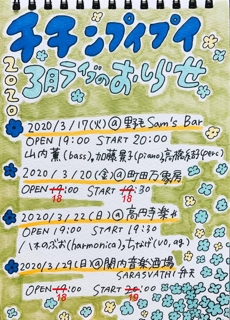 チチンプイプイ
2020
3月ライブのおしらせ
2020/3/17(火)@野毛Sam's Bar
OPEN 19:00 START 20:00
山内薫(bass),加藤景子(piano),高橋結子(perc)
2020/3/20(金)@町田万象房
OPEN 19:00 START 19:30
18 18
2020/3/22(日)@高円寺楽や
八木のぶお(harmonica),ちなげ(vo,ag)
2020/3/29(日)@関内音楽酒場
SARASVATHI弁天
OPEN 19:00 START 20:00
18 19